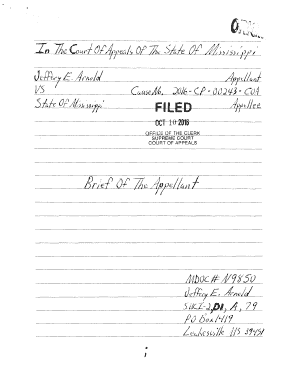 In The Court Of Appeals Of The State Of Mississippi
Jeffrey E. Arnold Appellant
VS Cause No. 2016-CP-00243-COA
State Of Mississippi Appellee
FILED
OCT 10 2016
OFFICE OF THE CLERK
SUPREME COURT
COURT OF APPEALS
Brief Of The Appellant
MDOC# N9850
Jeffrey E. Arnold
SMCI-2, D1, A, 79
PO Box 1419
Leakesville MS 39451
i